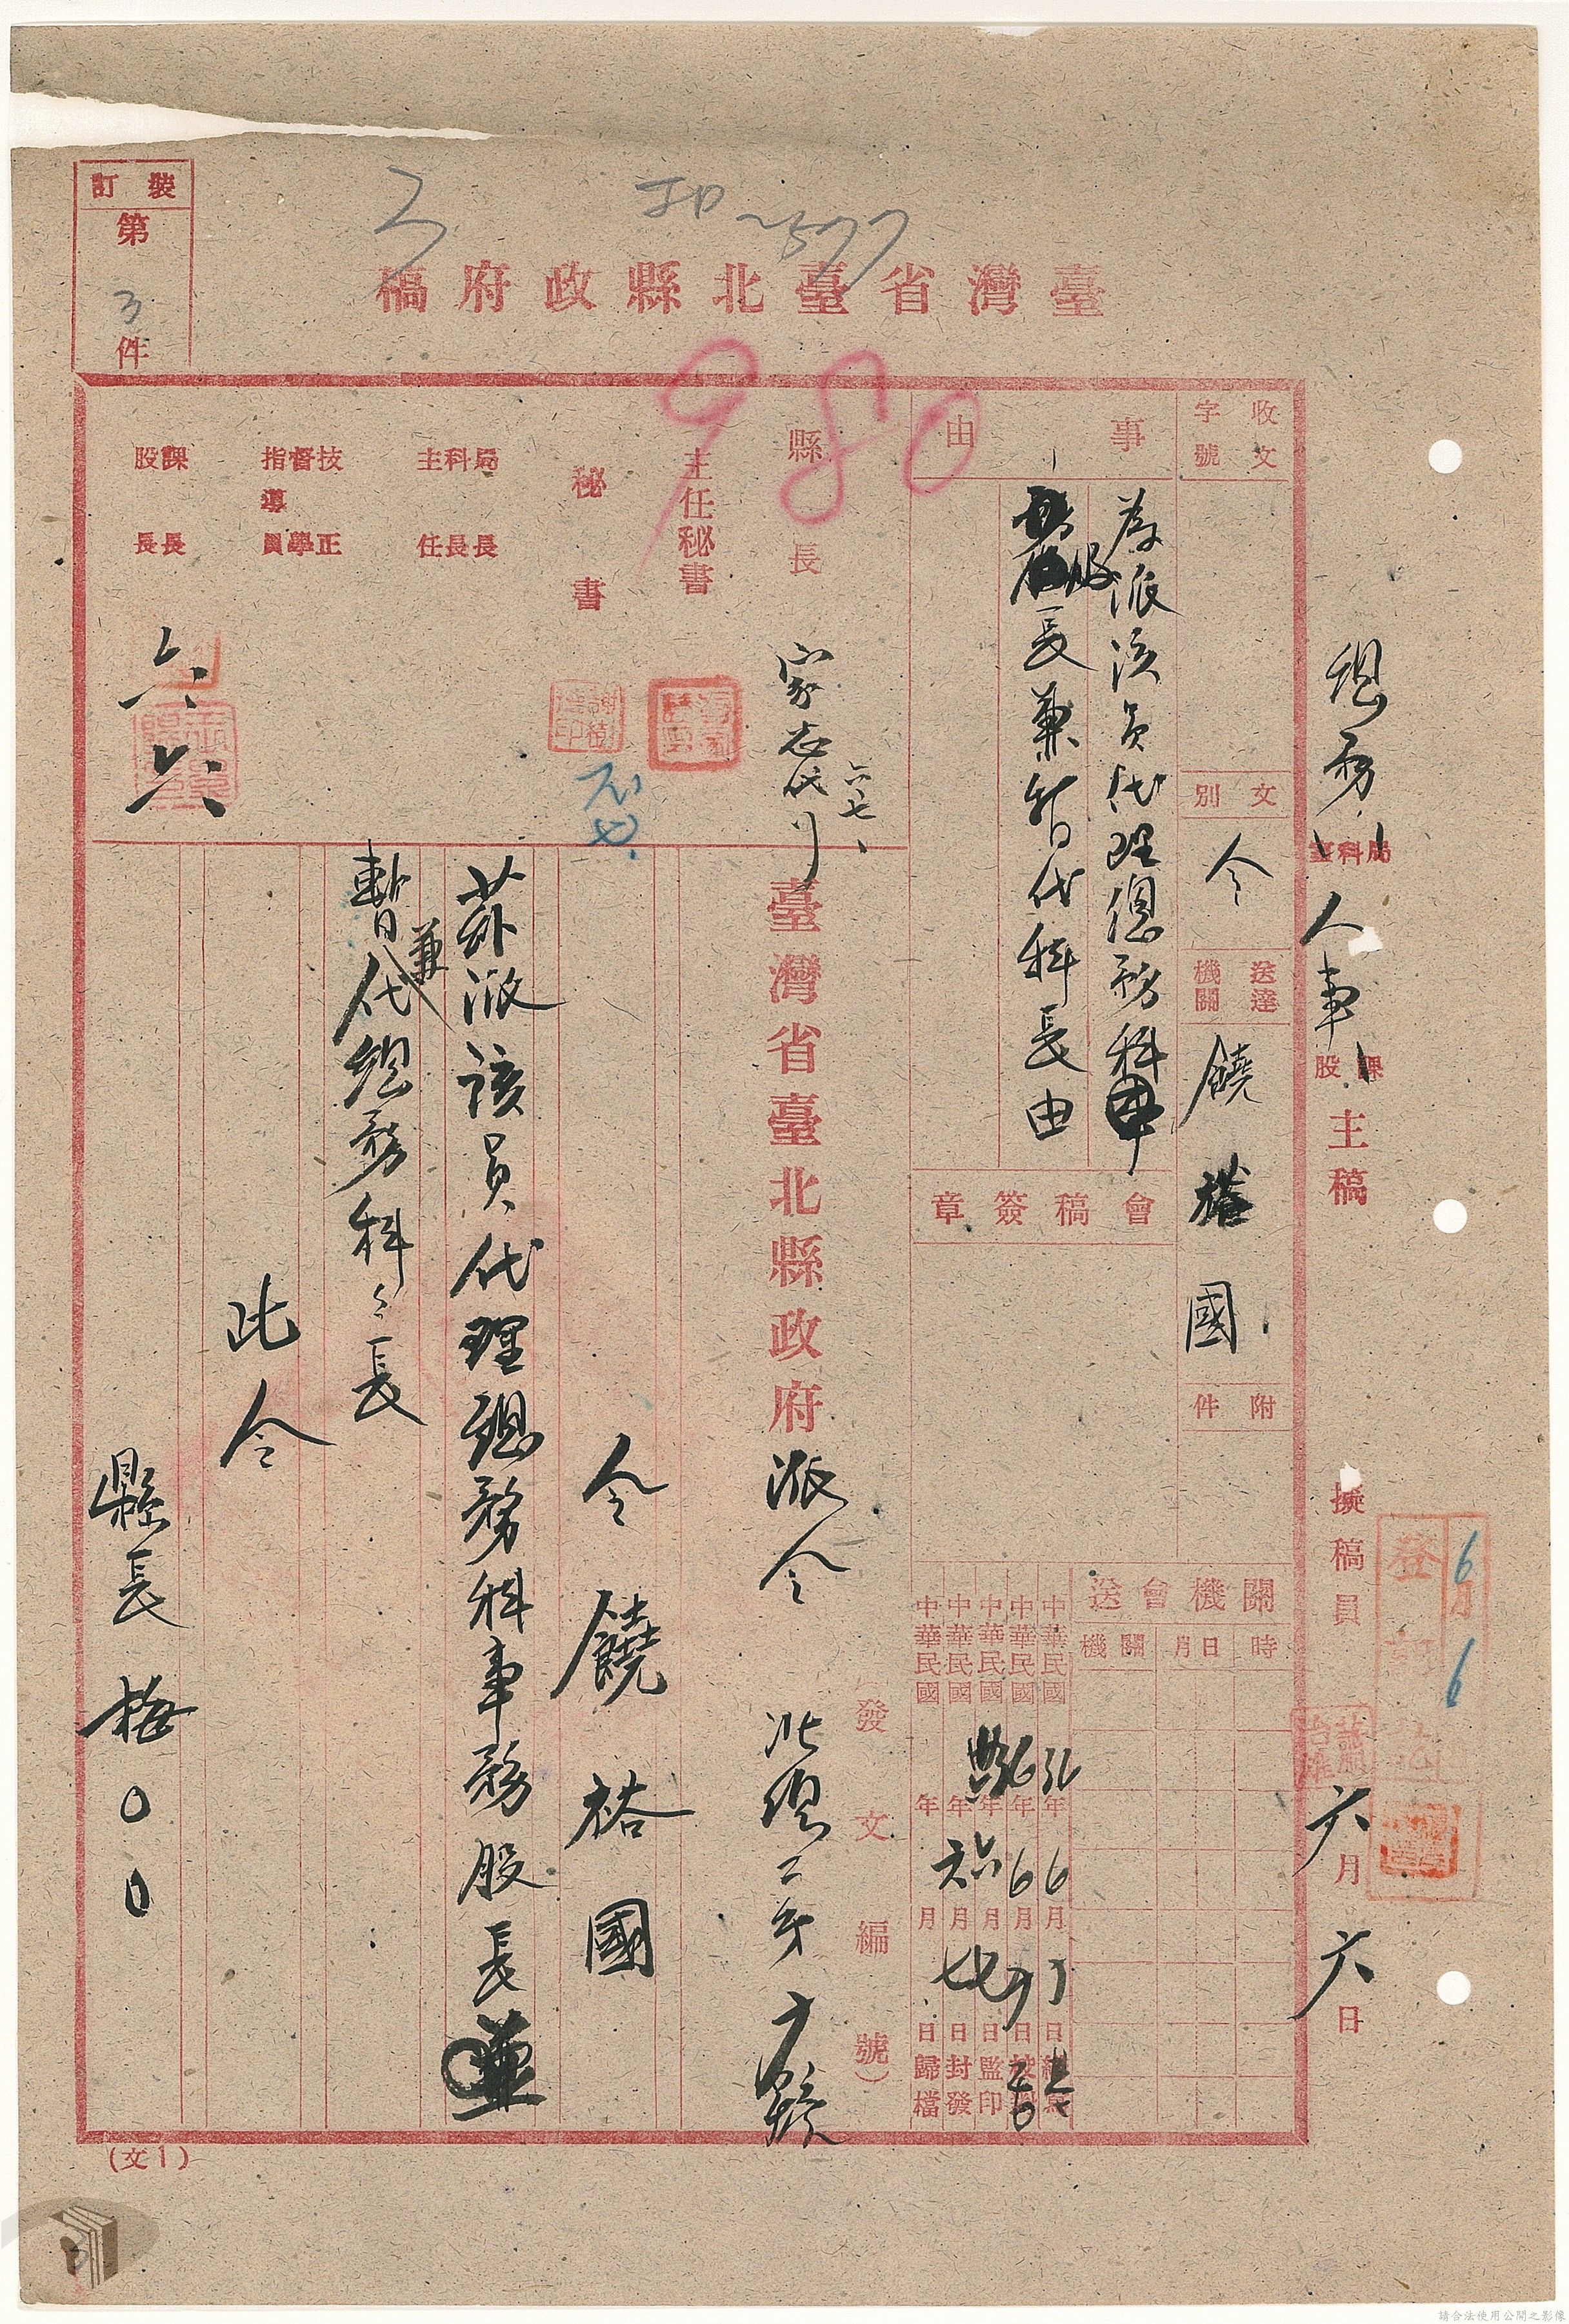 裝訂
第
3
件
臺灣省臺北縣政府稿
980
總務
局科室
人事
課股
主稿
擬稿員
六月六日
6月
6
收文
字號
文別
令
送達機關
饒裕國
附件
事由
為派該員代理總務科
股長兼暫代科長由
會稿簽章
關機會送
時
日月
關機
中華民國36年6月
中華民國36年6月
中華民國
年
月
日監印
中華民國
年六月七日封發
中華民國
年
月
日歸檔
縣長
家志代行
六七、
主任秘書
秘書
局科主
長長任
技督指導
正學員
課股
長長
六六
臺灣省臺北縣政府派令
發文編號)
令饒裕國
茲派該員代理總務科事務股長
兼
暫代總務科々長
此令
縣長梅〇〇
(文1)
請合法使用公開之影像